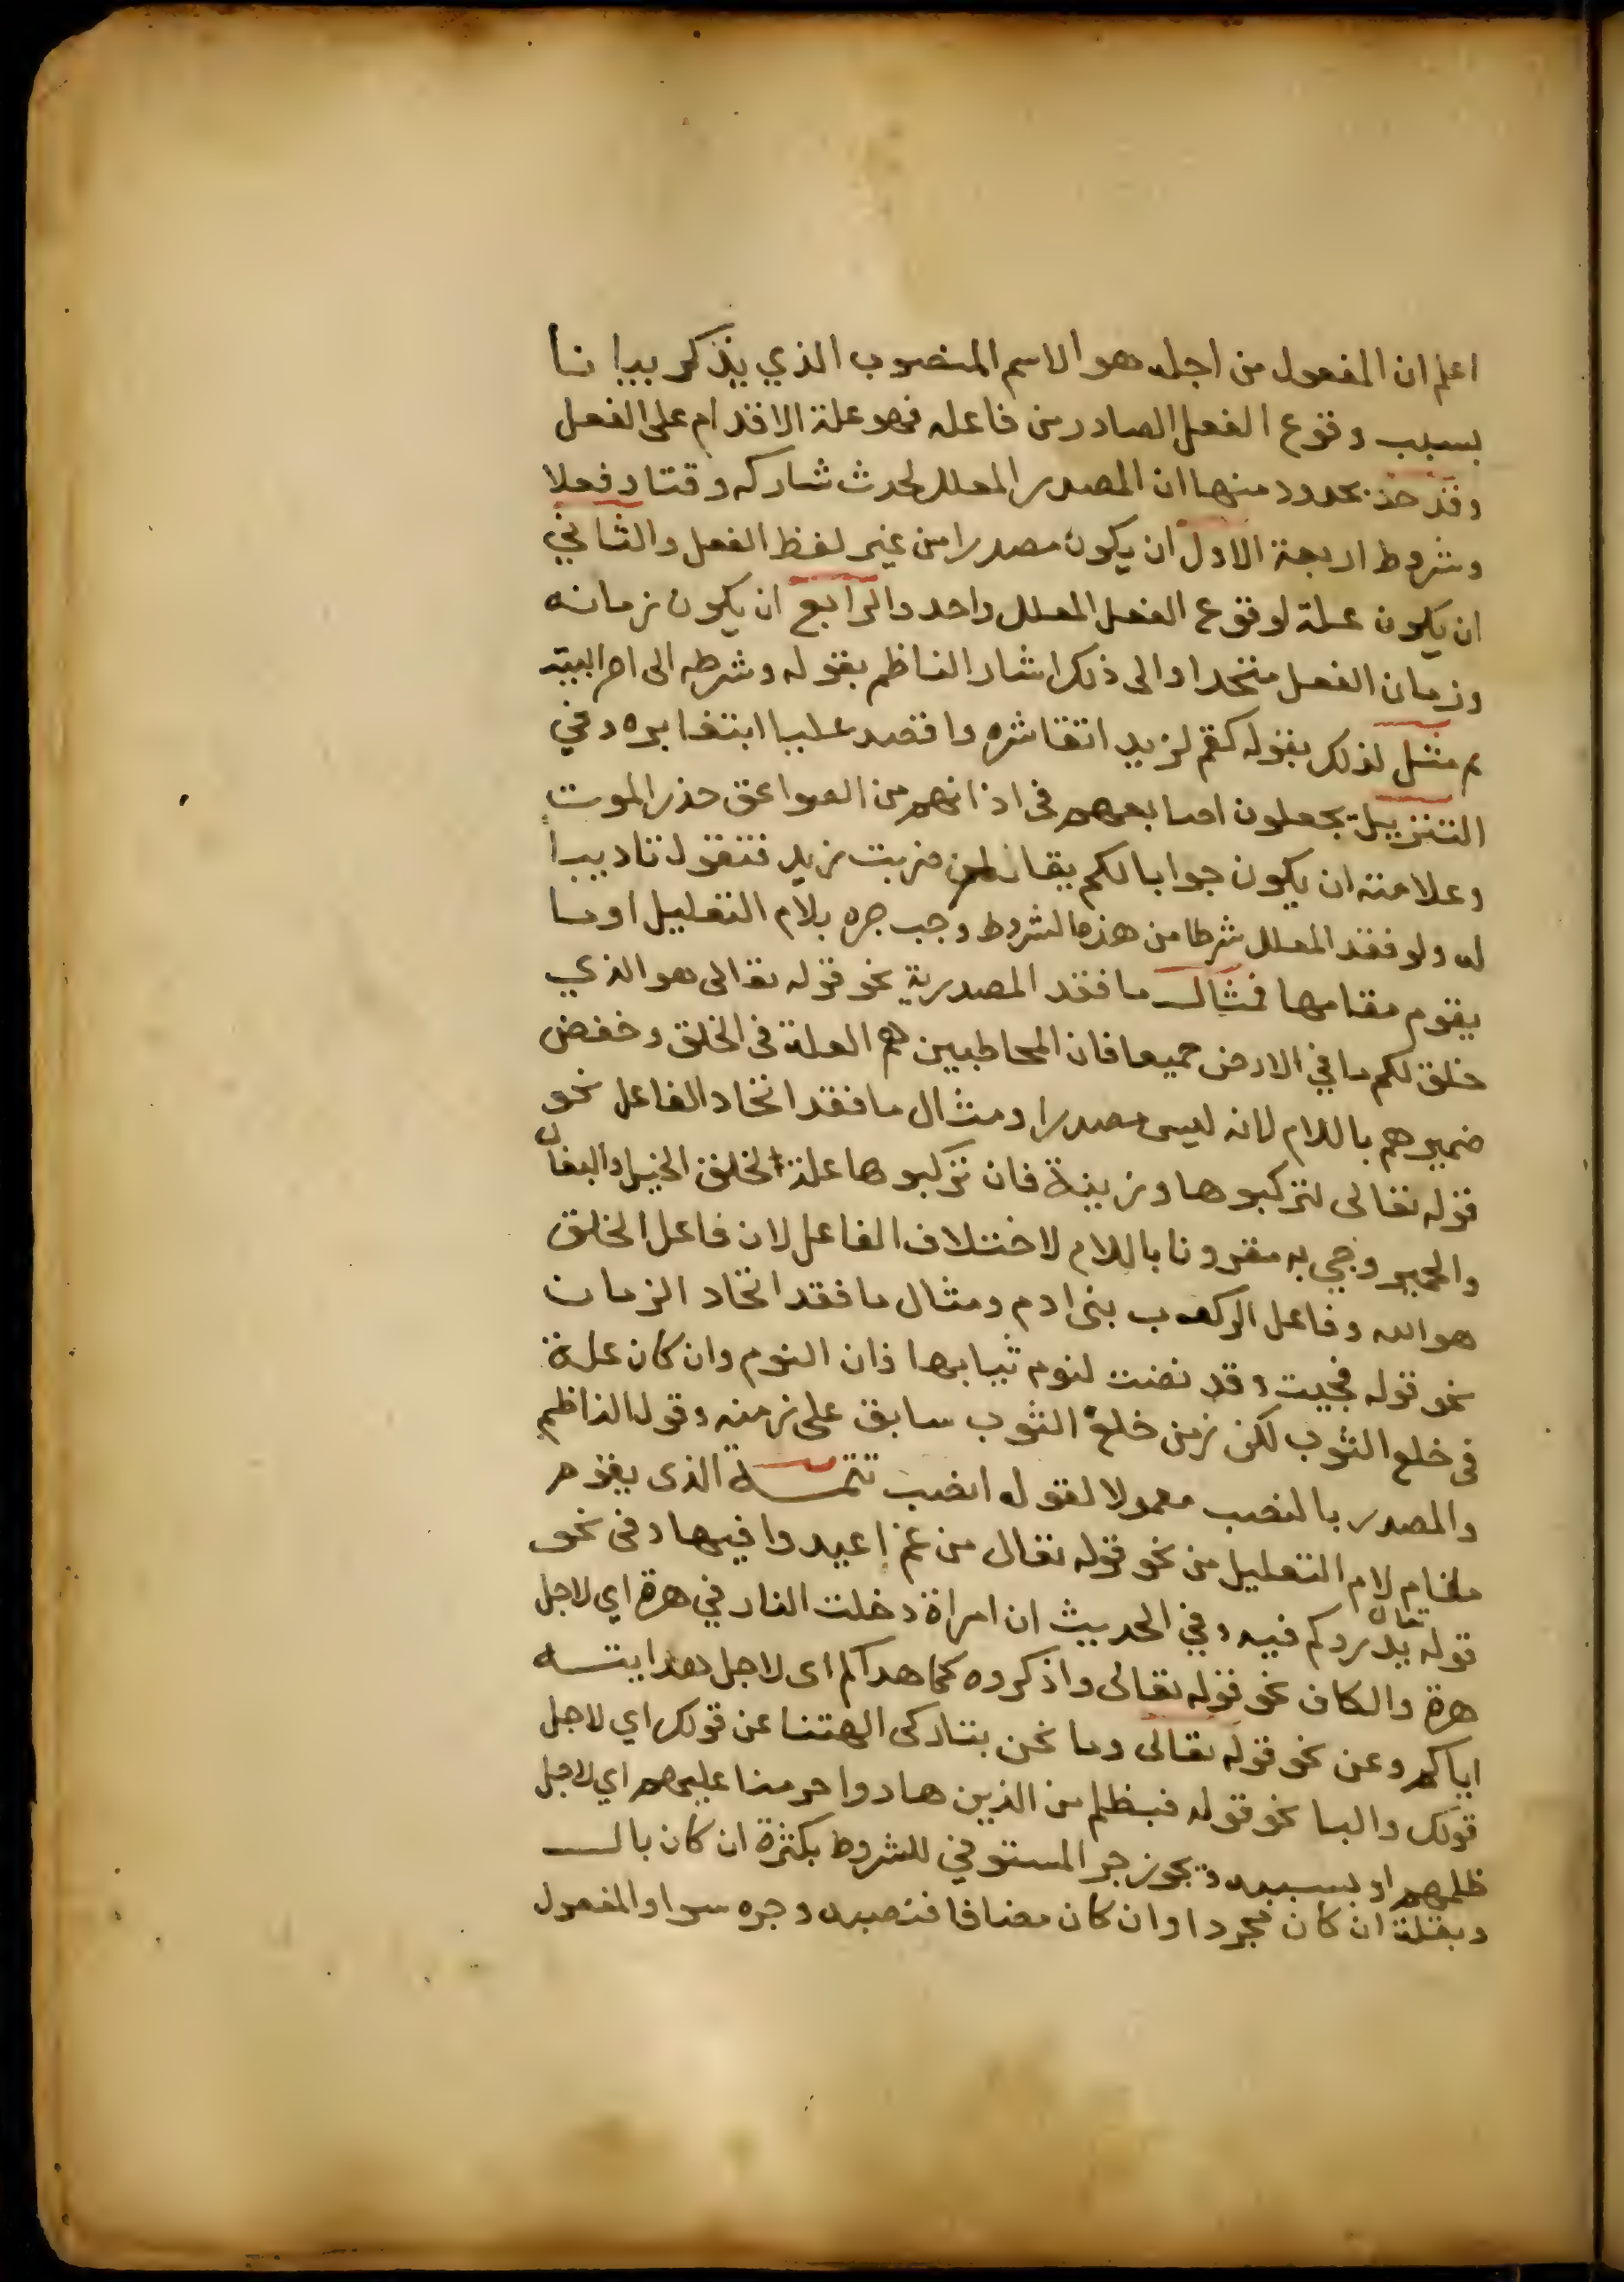 اعلم ان المفعول من اجله هو الاسم المنصوب الذي يذكر بيانا
بسبب وقوع الفعل الصادر من فاعله فهو علة الاقدام على الفعل
وقد حد بحدود منها ان المصدر المعلل لحدث شاركه وقتا وفعلا
وشروط اربعة الاول ان يكون مصدرا من غير لفظ الفعل والثاني
ان يكون علة لوقوع الفعل المعلل واحد والرابع ان يكون زمانه
وزمان الفعل متحدا والى ذلك اشار الناظم بقوله وشرطه الى اخر البيت
مثل لذلك بقوله كقم لزيد اتقا شره واقصد عليا ابتغا بره وفي
التنزيل يجعلون اصابعهم في اذانهم من الصواعق حذر الموت
وعلامته ان يكون جوابا لكم يقال لمن ضربت زيد فتقول تاديبا
له ولو فقد المعلل شرطا من هذه الشروط وجب جره بلام التعليل او ما
يقوم مقامها فمثال ما فقد المصدرية نحو قوله تعالى هو الذي
خلق لكم ما في الارض جميعا فان المخاطبين هم العلة في الخلق وخفض
ضميرهم باللام لانه ليس مصدرا ومثال ما فقد اتحاد الفاعل نحو
قوله تعالى لتركبوها وزينة فان تركبوها علة لخلق الخيل والبغال
والحمير وجي به مقرونا باللام لاختلاف الفاعل لان فاعل الخلق
هو الله وفاعل الركوب بنى ادم ومثال ما فقد اتحاد الزمان
نحو قوله فجيت وقد نضت لنوم ثيابها فان النوم وان كان علة
في خلع الثوب لكن زمن خلع الثوب سابق على زمنه وقول الناظم
والمصدر بالنصب معمولا لقوله انصب تتمة الذى يقوم
مقام لام التعليل من نحو قوله تعالى من غم اعيدوا فيها وفى نحو
قوله تعالى يذروكم فيه وفي الحديث ان امراة دخلت النار في هرة اي لاجل
هرة والكاف نحو قوله تعالى واذكروه كما هداكم اى لاجل هدايته
اياكم وعن نحو قوله تعالى وما نحن بتاركى الهتنا عن قولك اي لاجل
قولك والبا نحو قوله فبظلم من الذين هادوا حرمنا عليهم اي لاجل
ظلمهم او بسببه ويجوز جر المستوفي للشروط بكثرة ان كان بال
وبقلة ان كان مجردا وان كان مضافا فنصبه وجره سوا والمفعول